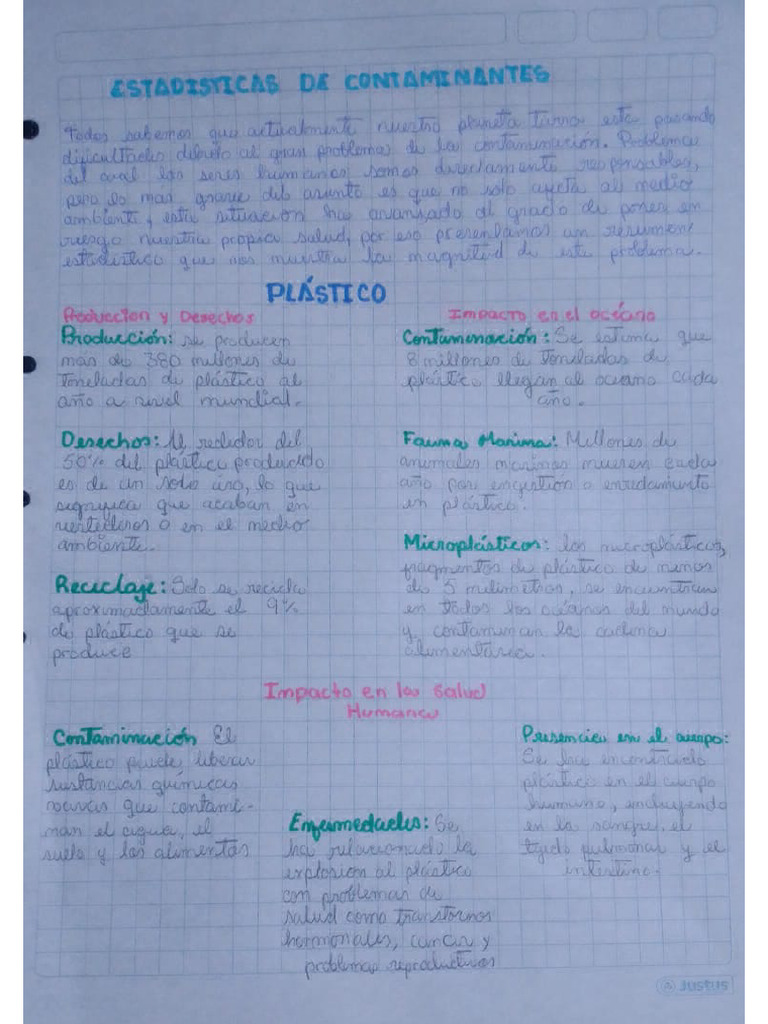 ESTADISTICAS DE CONTAMINANTES
Todos sabemos que actualmente nuestro planeta tierra esta pasando
dificultades debido al gran problema de la contaminación. Problema
del cual los seres humanos somos directamente responsables,
pero lo mas grave del asunto es que no solo afecta al medio
ambiente, esta situación ha avanzado al grado de poner en
riesgo nuestra propia salud, por eso presentamos un resumen
estadistico que nos muestra la magnitud de este problema.
PLÁSTICO
Produccion y Desechos
Producción: se producen
más de 380 millones de
toneladas de plástico al
año a nivel mundial.
Desechos: Al rededor del
50% del plástico producido
es de un solo uso, lo que
significa que acaban en
vertederos o en el medio
ambiente.
Reciclaje: Solo se recicla
aproximadamente el 9%
de plástico que se
produce
Impacto en el océano
Contaminación: Se estima que
8 millones de toneladas de
plástico llegan al oceano cada
año.
Fauna Marina: Millones de
animales marinos mueren cada
año por ingestión o enredamiento
en plástico.
Microplásticos: los microplásticos,
fragmentos de plástico de menos
de 5 milímetros, se encuentran
en todos los océanos del mundo
y contaminan la cadena
alimentaria.
Impacto en la Salud
Humana
Contaminación El
plástico puede liberar
sustancias químicas
nocivas que contami-
nan el agua, el
suelo y los alimentos
Enfermedades: Se
ha relacionado la
explosion al plástico
con problemas de
salud como transtornos
hormonales, cancer y
problemas reproductivos
Presencia en el cuerpo:
Se ha encontrado
plástico en el cuerpo
humano, incluyendo
en la sangre, el
tejido pulmonar y el
intestino.
JUSTUS